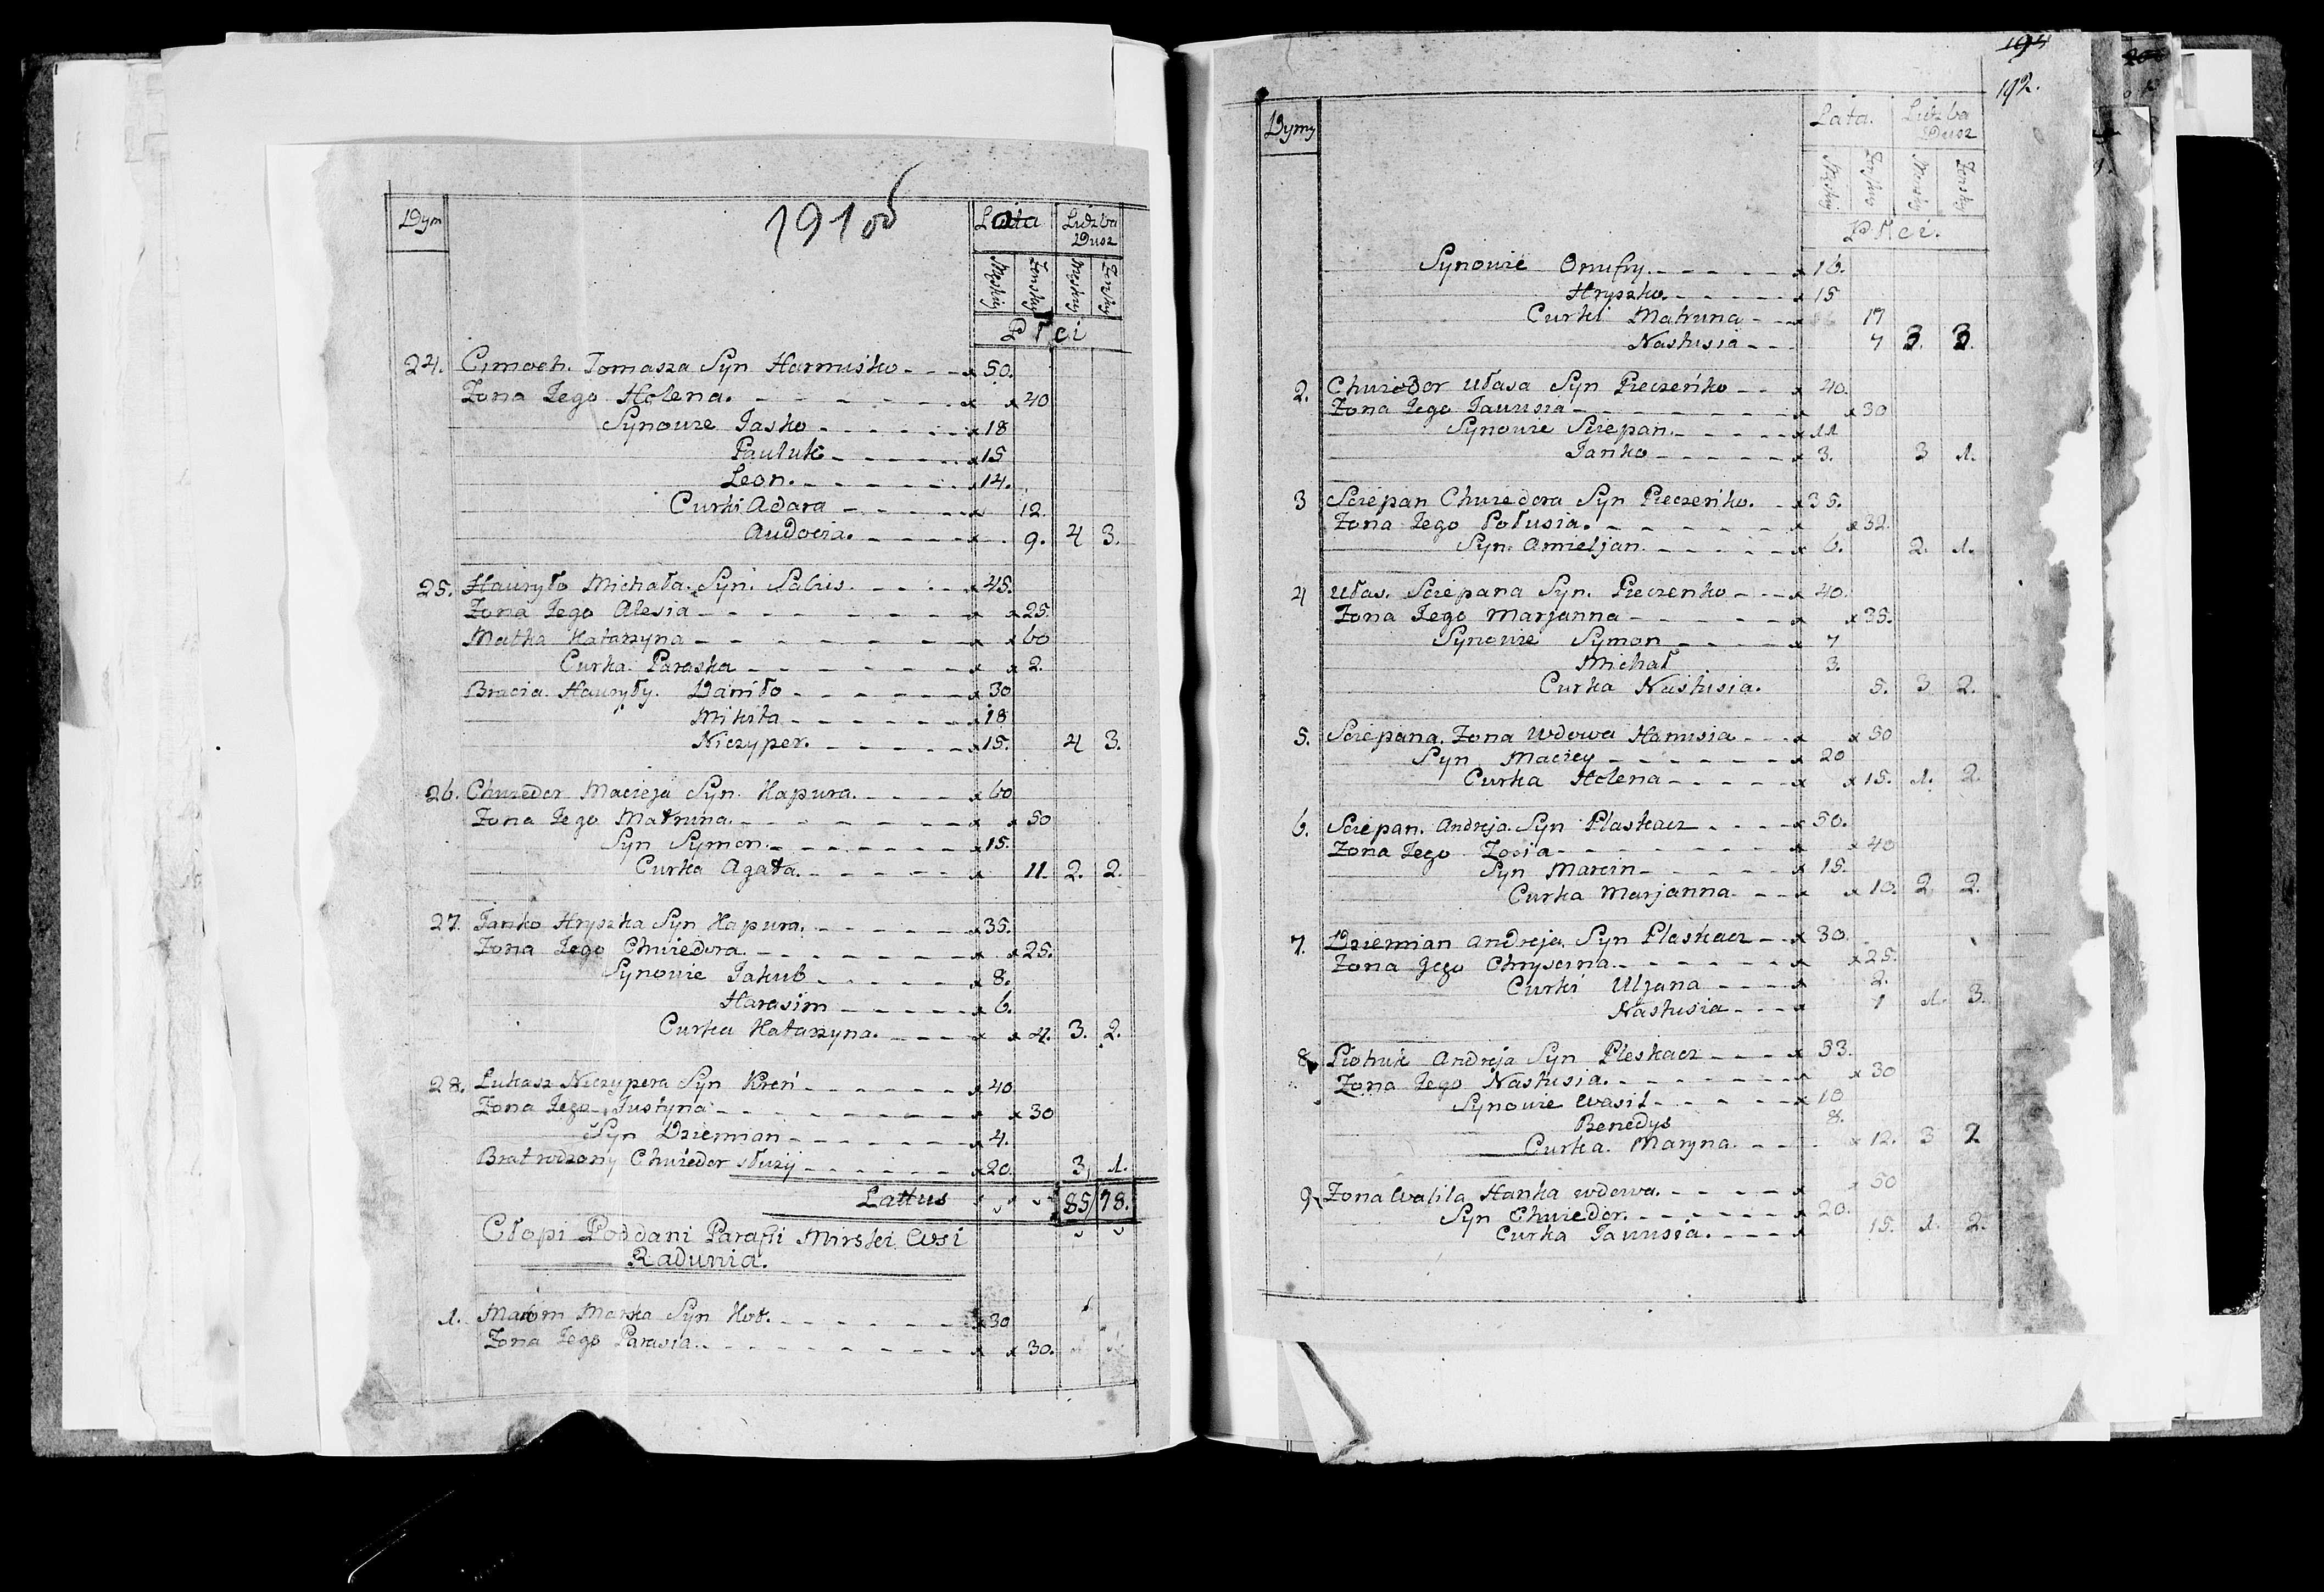 191об
Dym
Lata
Liczba Dusz
Męskiey Żenskiey Męskiey Żenskiey
Płci
24. Cimoch. Tomasza Syn Harnuśko 50.
Żona Jego Holena. 40
Synowie Jasko 18
Pauluk 15
Leon. 14.
Curki Adara 12.
Audocia. 9. 4 3.
25. Hauryło Michała. Syn. 45.
Żona Jego Alesia 25.
Matka Katarzyna 60
Curka Paraska 2.
Bracia Hauryły. Daniło 30
Mikita 18
Niczyper. 15. 4 3.
26. Chwiedor Macieja Syn. Hapura. 60
Żona Jego Matruna. 50
Syn Symon. 15.
Curka Agata. 11. 2. 2.
27. Janko Hryszka Syn Hapura. 35.
Żona Jego Chwiedora. 25.
Synowie Jakub 8.
Harasim 6.
Curka Katarzyna. 4. 3. 2.
28. Łukasz Niczypera Syn Kreń 40.
Żona Jego Justyna 30
Syn Dziemian 4.
Brat rodzony Chwiedor służy 20. 3, 1.
Lattus 85/78.
Cłopi Poddani Parafii Mirskei Wsi
Radunia.
1. Marka Syn Kot. 30
Żona Jego Parasia. 30.
194
192.
Dymy
Lata.
Liczba Dusz
Męskiey Żenskiey Męskiey Żenskiey
Płci.
Synowie Onufry. 16.
Hryszko. 15
Curki Matruna 17
Nastusia 7 3. 3.
2. Chwiedor Ułasa Syn Pieczeńko 40.
Żona Jego Taurusia 30
Synowie Sciepan. 11
Janko 3. 3 1.
3 Sciepan Chwiedora Syn Pieczeńko. 35.
Żona Jego Połusia. 32.
Syn. Amieljan. 6. 2. 1.
4 Ułas. Sciepana Syn. Pieczenko 40.
Żona Jego Marjanna 35.
Synowie Symon 7
Michał 3.
Curka Nastusia. 5. 3 2.
5. Sciepana. Żona Wdowa Hanusia 50
Syn Maciey 20
Curka Holena 15. 1. 2.
6. Sciepan. Andreja. Syn Plaskacz 50.
Żona Jego Zosia 40
Syn Marcin 15.
Curka Marjanna. 10. 2 2.
7. Dziemian Andreja. Syn Plaskacz 30.
Żona Jego Chryscina. 25.
Curki Uljana 2.
Nastusia 1 1. 3.
8 Piotruk Andreja Syn Pleskacz 33.
Żona Jego Nastusia. 30
Synowie Wasil 10
Benedys 8.
Curka. Maryna. 12. 3 2
9. Żona Wasila Hanka wdowa. 50
Syn Chwiedor. 20.
Curka Taurusia. 15. 1. 2.